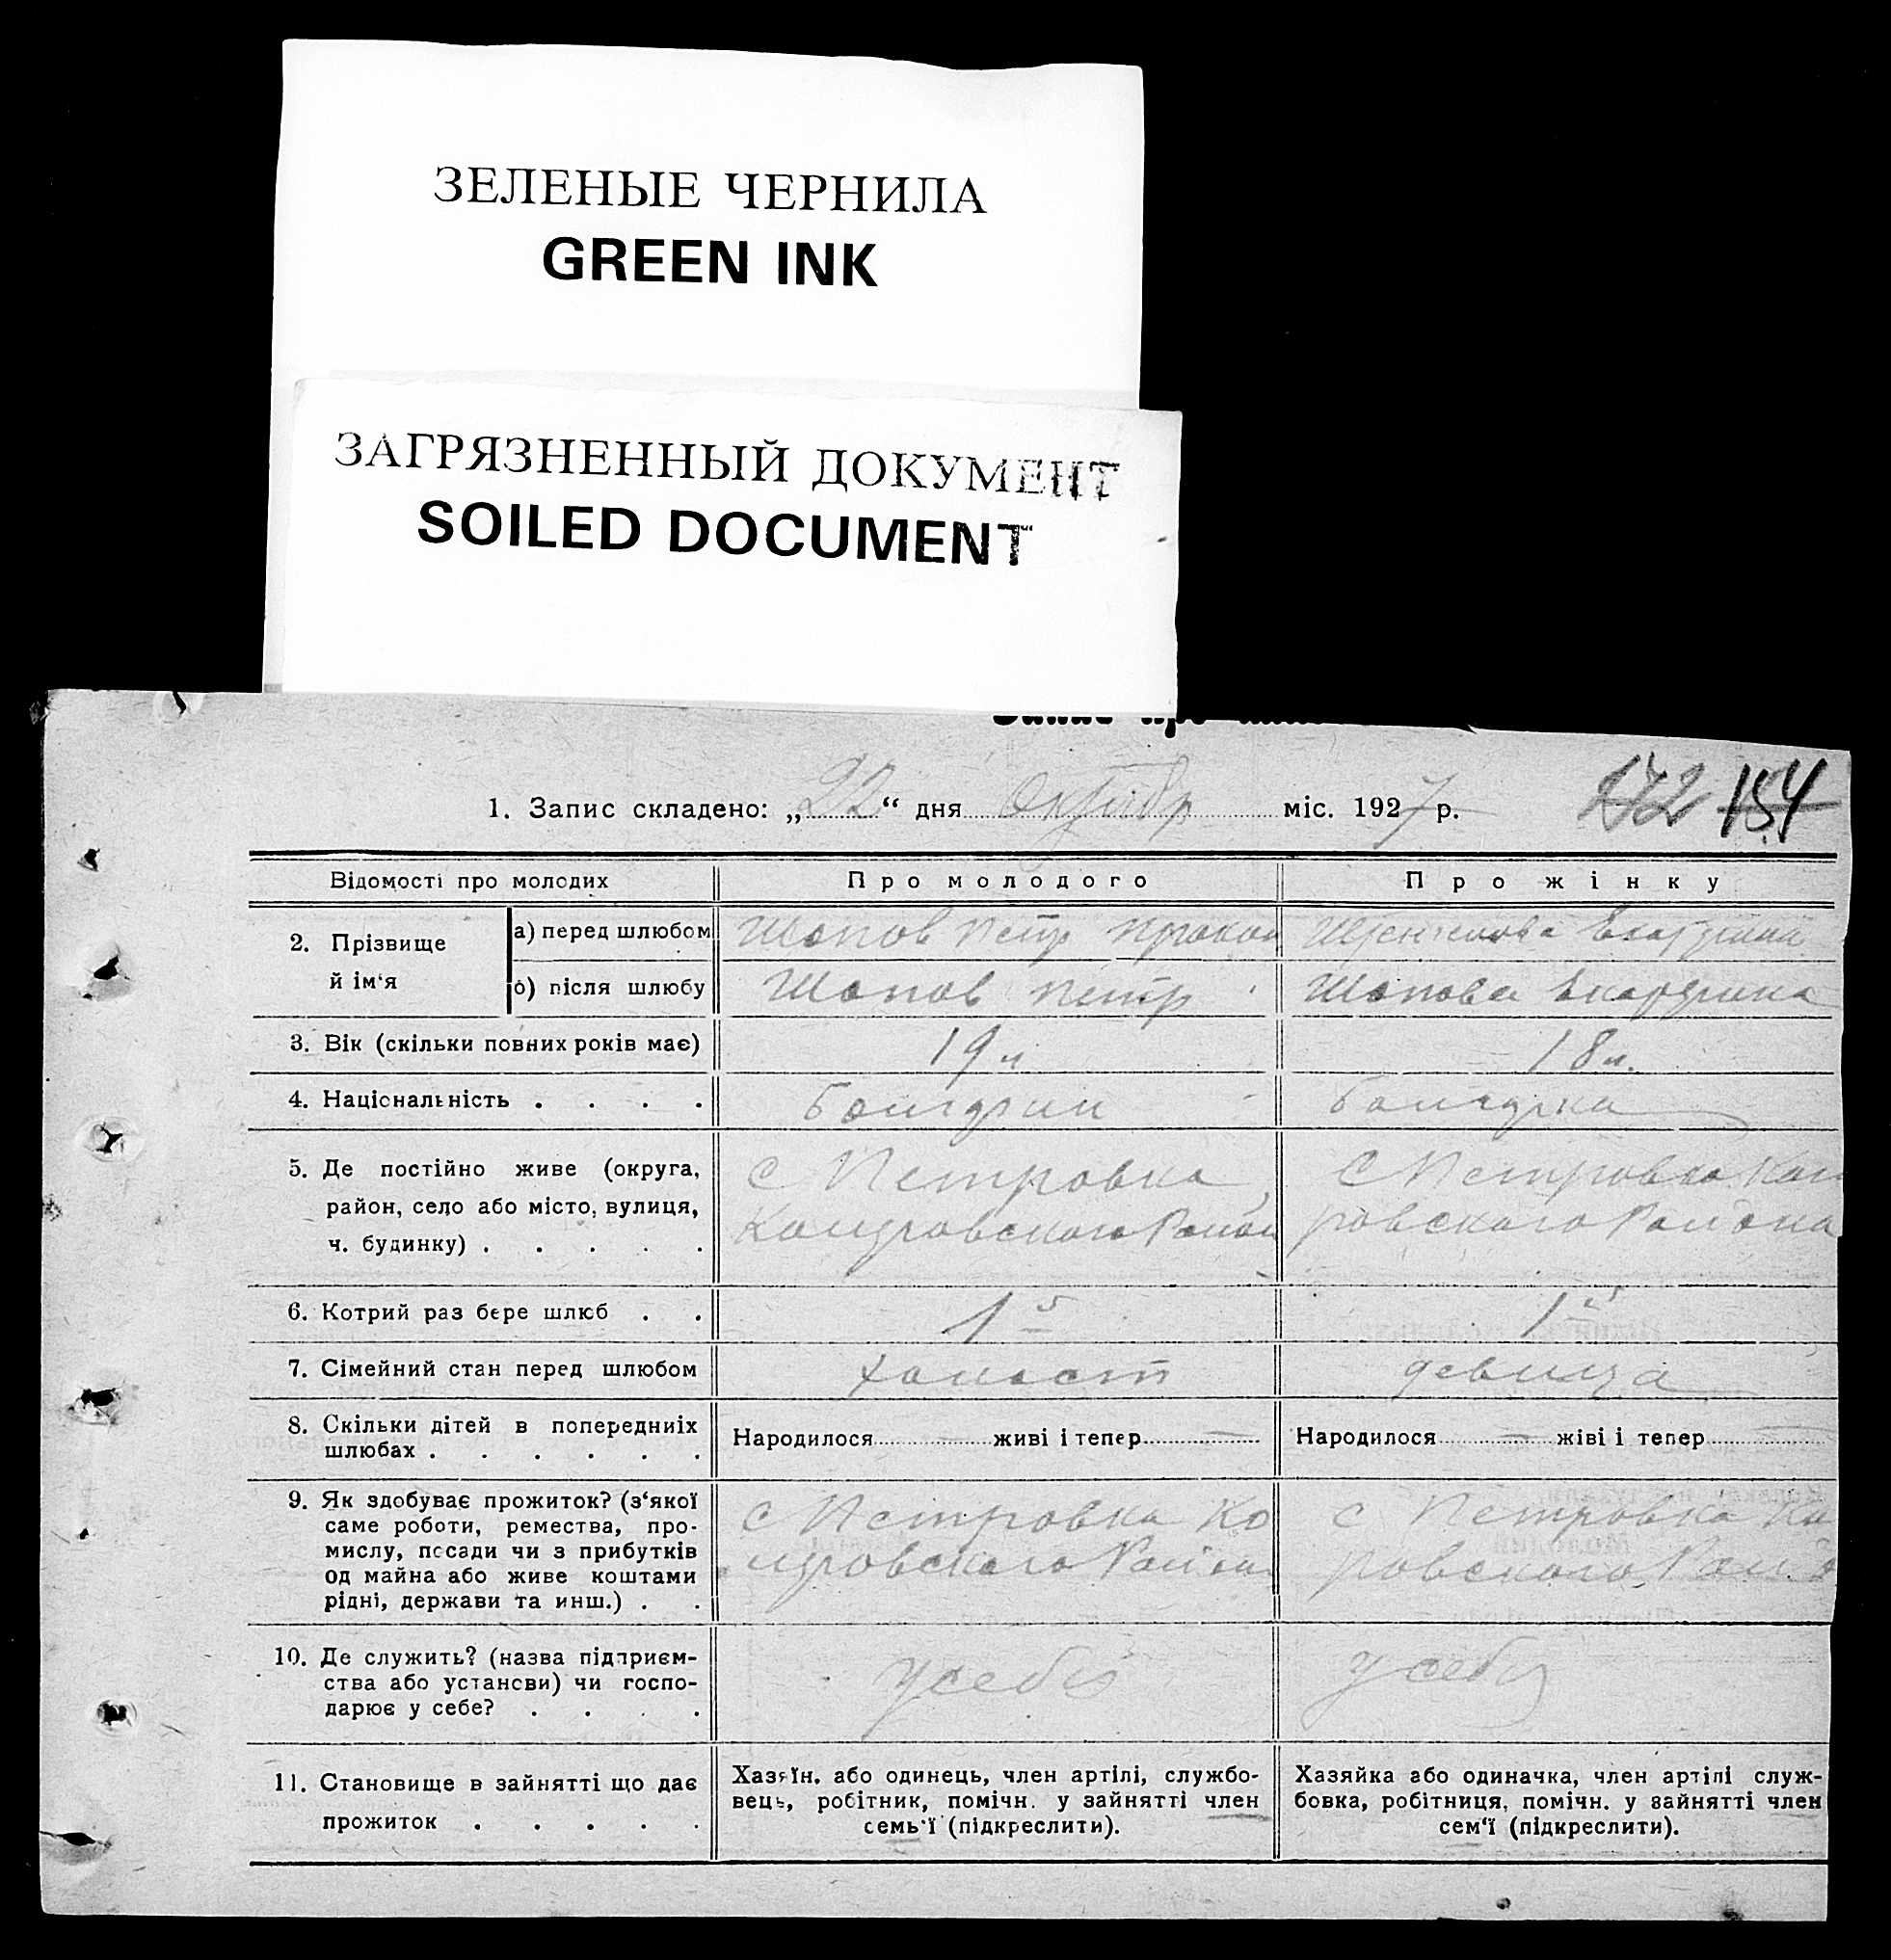 ЗЕЛЕНЫЕ ЧЕРНИЛА
GREEN INK
ЗАГРЯЗНЕННЫЙ ДОКУМЕНТ
SOILED DOCUMENT
1. Запис складено: „22“ дня міс. 1927 р. 172 154
Відомості про молодих
Про молодого
Про жінку
2. Прізвище й ім‘я
а) перед шлюбом
Шопов Петр
Екатерина
б) після шлюбу
Шопов Петр
Шопова Екатерина
3. Вік (скільки повних років має)
19 л
18 л.
4. Національність . . . .
болгарин
болгарка
5. Де постійно живе (округа,
район, село або місто, вулиця,
ч. будинку) . . . . .
С Петровка
Коларовского Район
С Петровка Кол
ровского Района
6. Котрий раз бере шлюб . .
1й
1й
7. Сімейний стан перед шлюбом
холост
девица
8. Скільки дітей в попередніх
шлюбах . . . . . .
Народилося — живі і тепер —
Народилося — жіві і тепер —
9. Як здобуває прожиток? (з‘якої
саме роботи, ремества, про-
мислу, посади чи з прибутків
од майна або живе коштами
рідні, держави та инш.) . .
с Петровка Ко
ларовского Район
с Петровка Ко
ровского Райо
10. Де служить? (назва підприєм-
ства або установи) чи госпо-
дарює у себе? . . . .
у себя
у себя
11. Становище в зайнятті що дає
прожиток . . . . .
Хазяїн, або одинець, член артілі, службо-
вець, робітник, помічн. у зайнятті член
семь‘ї (підкреслити).
Хазяйка або одиначка, член артілі служ-
бовка, робітниця, помічн. у зайнятті член
сем‘ї (підкреслити).